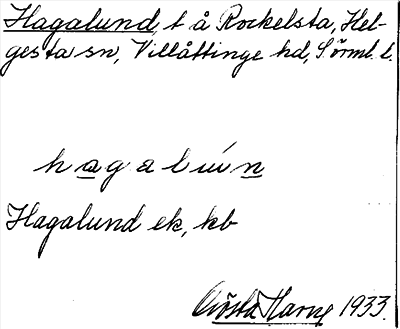 Hagalund, t å Rockelsta, Hel-
gesta sn, Villåttinge hd, Sörml. l.
hagaluń̲n
Hagalund ek, kb
Gösta Harne 1933.